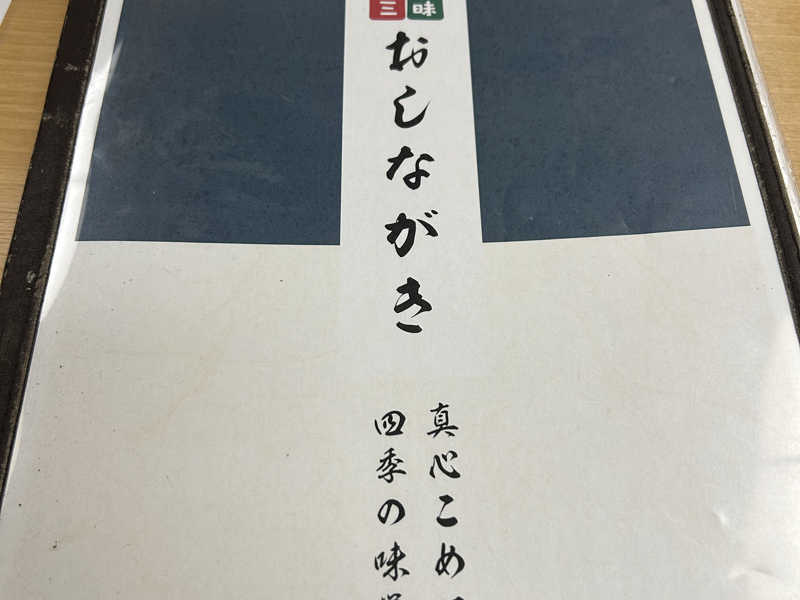 三味
おしながき
真心こめ
四季の味